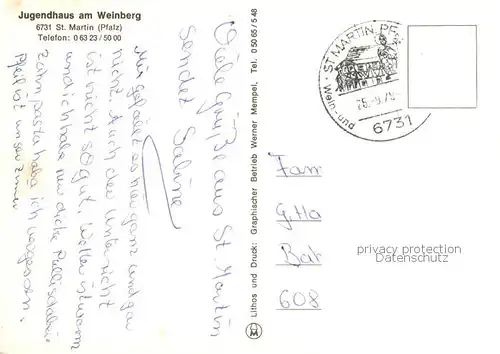 Jugendhaus am Weinberg
6731 St. Martin (Pfalz)
Telefon: 0 63 23 / 50 00
Viele Grüße aus St. Martin
sendet Sabine
Mir gefällt es hier ganz und gar
nicht. Auch der Unterricht
ist nicht so gut. Wetter ist warm
und ich habe nur dicke Pullis dabei.
Zahnpasta habe ich vergessen.
ist unser Zimmer
Lithos und Druck: Graphischer Betrieb Werner Mempel, Tel. 0 50 65 / 5 48
ST MARTIN, PF
Wein- und
6731
Fam
G. Ha
Bat
608
privacy protection
Datenschutz